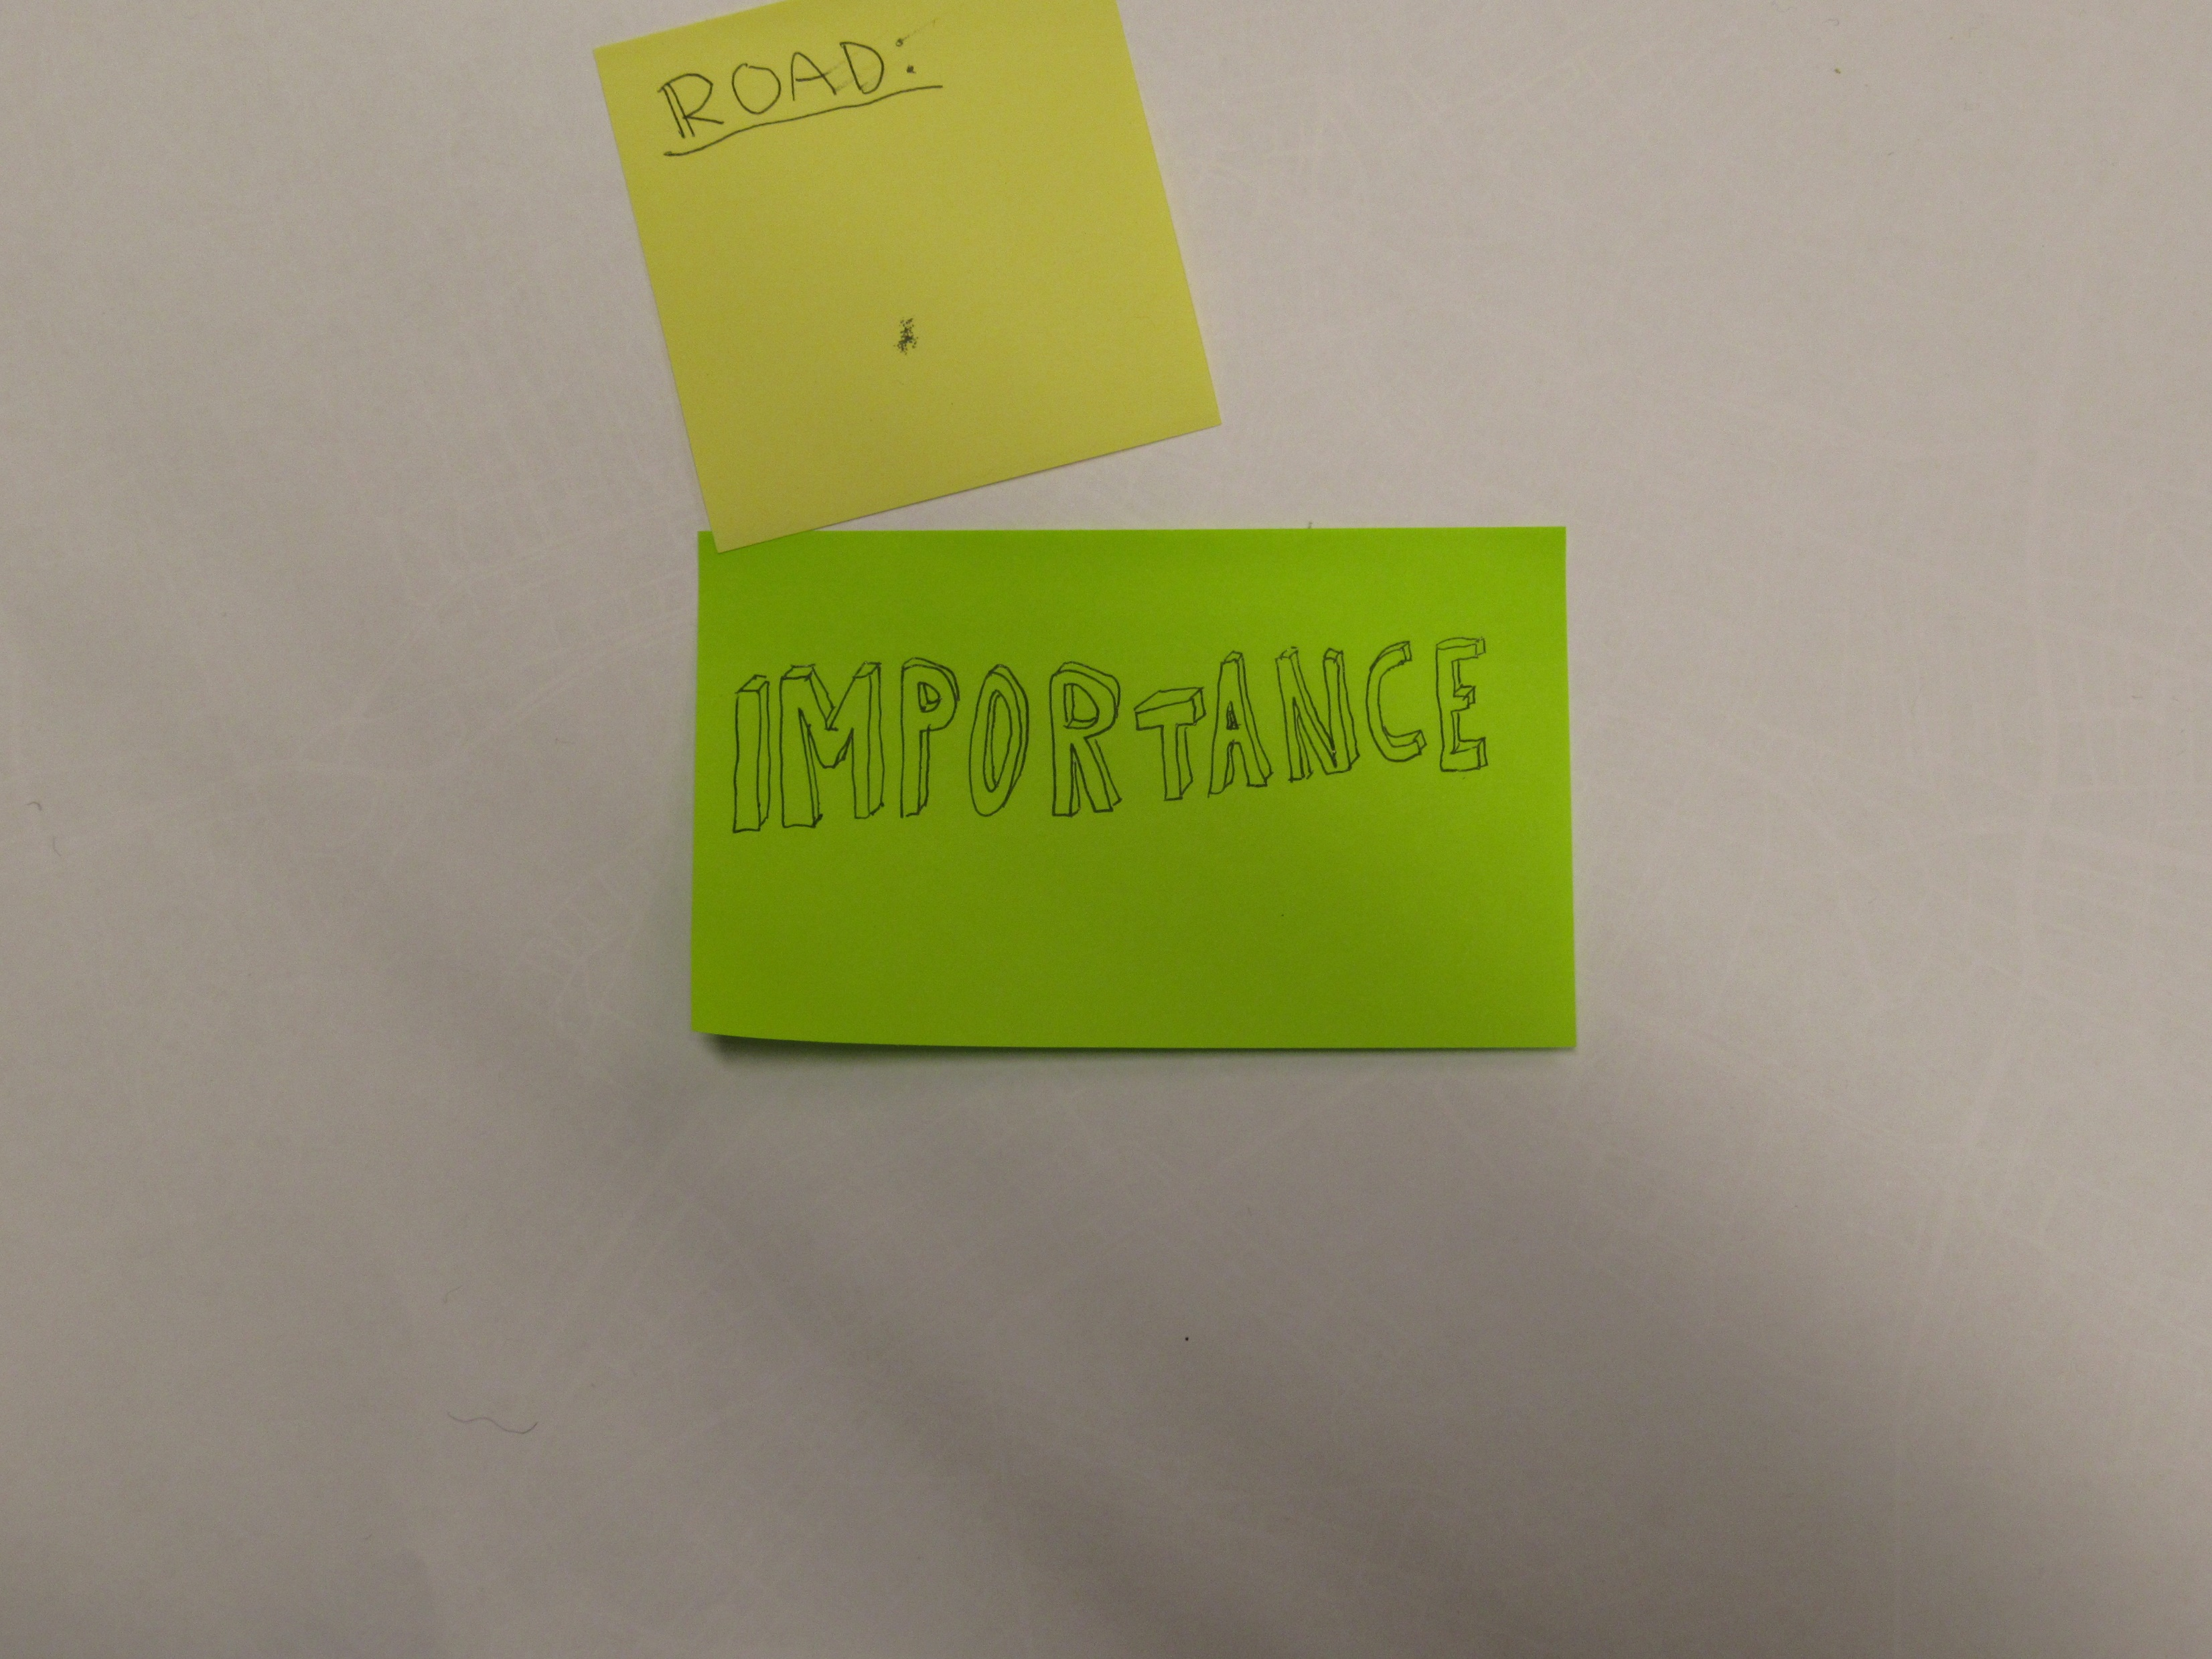 ROAD:
IMPORTANCE